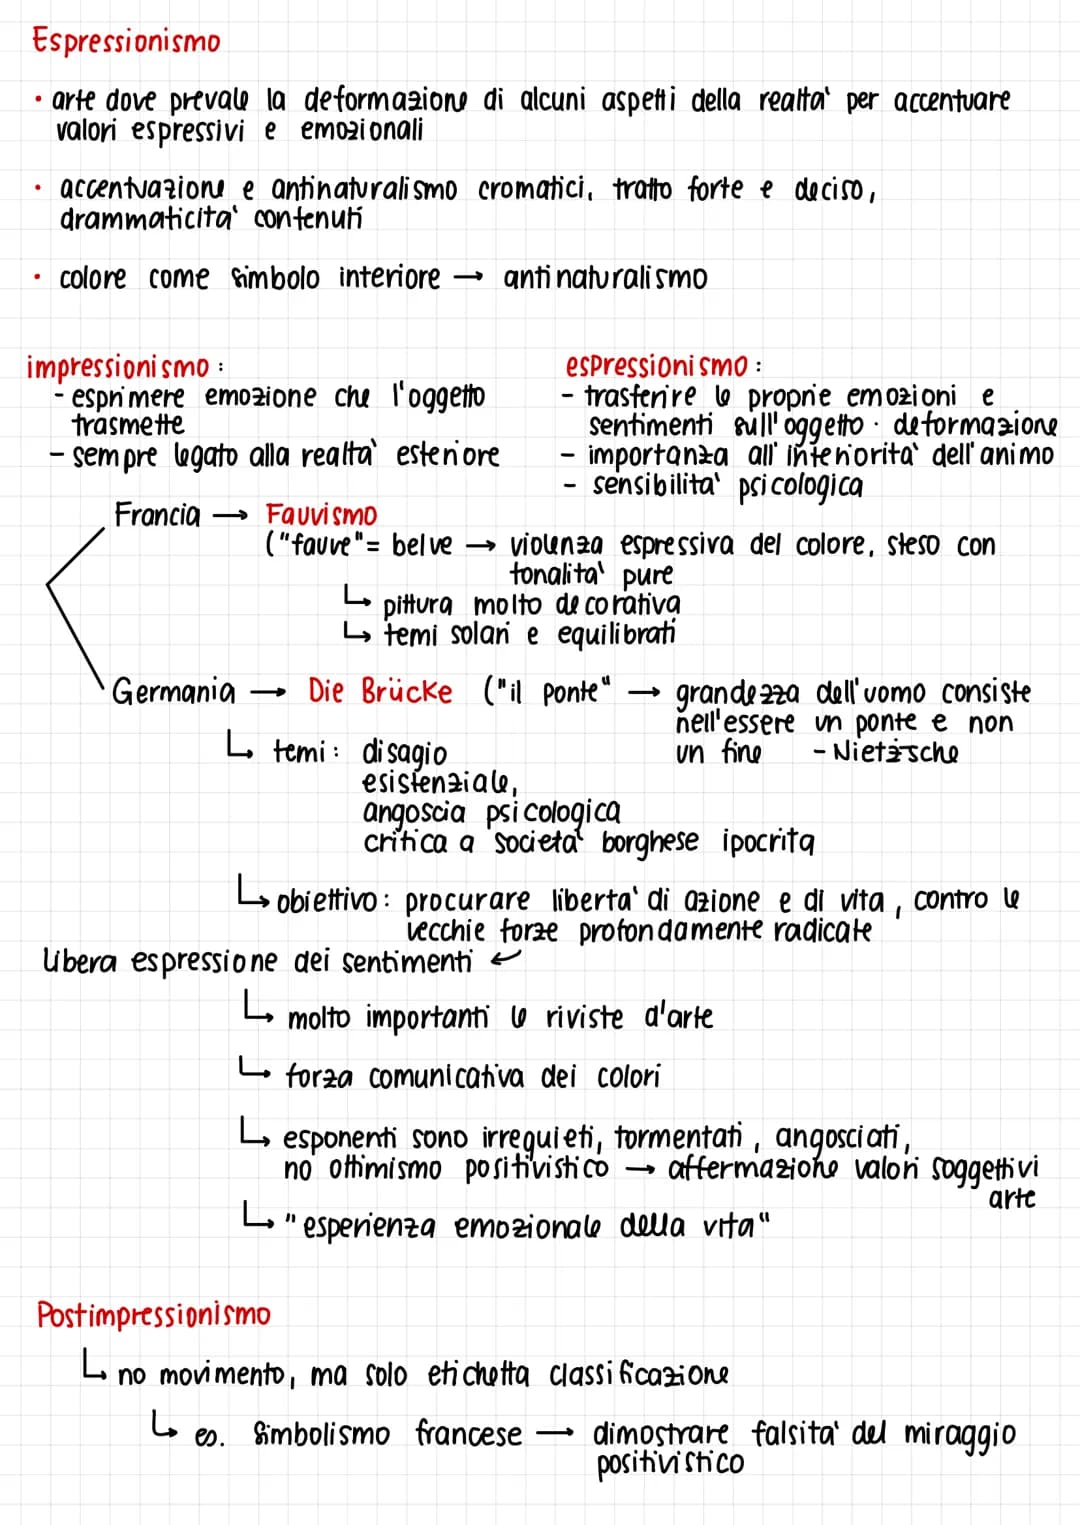 Espressionismo
• arte dove prevale la deformazione di alcuni aspetti della realta' per accentuare
valori espressivi e emozionali
• accentuazione e antinaturalismo cromatici, tratto forte e deciso,
drammaticita' contenuti
• colore come simbolo interiore → antinaturalismo
impressionismo :
- esprimere emozione che l'oggetto
trasmette
- sempre legato alla realta' esteriore
espressionismo :
- trasferire le proprie emozioni e
sentimenti sull'oggetto · deformazione
- importanza all'interiorita' dell'animo
- sensibilita' psicologica
Francia → Fauvismo
("fauve"= belve → violenza espressiva del colore, steso con
tonalita' pure
↳ pittura molto decorativa
↳ temi solari e equilibrati
Germania → Die Brücke ("il ponte" → grandezza dell'uomo consiste
nell'essere un ponte e non
un fine - Nietzsche
↳ temi: disagio
esistenziale,
angoscia psicologica
critica a societa' borghese ipocrita
↳ obiettivo: procurare liberta' di azione e di vita, contro le
vecchie forze profondamente radicate
libera espressione dei sentimenti ↙
↳ molto importanti le riviste d'arte
↳ forza comunicativa dei colori
↳ esponenti sono irrequieti, tormentati, angosciati,
no ottimismo positivistico → affermazione valori soggettivi
arte
↳ "esperienza emozionale della vita"
Postimpressionismo
↳ no movimento, ma solo etichetta classificazione
↳ es. Simbolismo francese → dimostrare falsita' del miraggio
positivistico